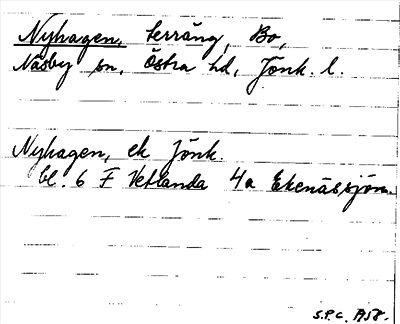 Nyhagen, terräng, Bo,
Näsby sn, Östra hd, Jönk. l.
Nyhagen, ek Jönk.
bl. 6 F Vetlanda 4a Ekenässjön.
S.P.C. 1958.